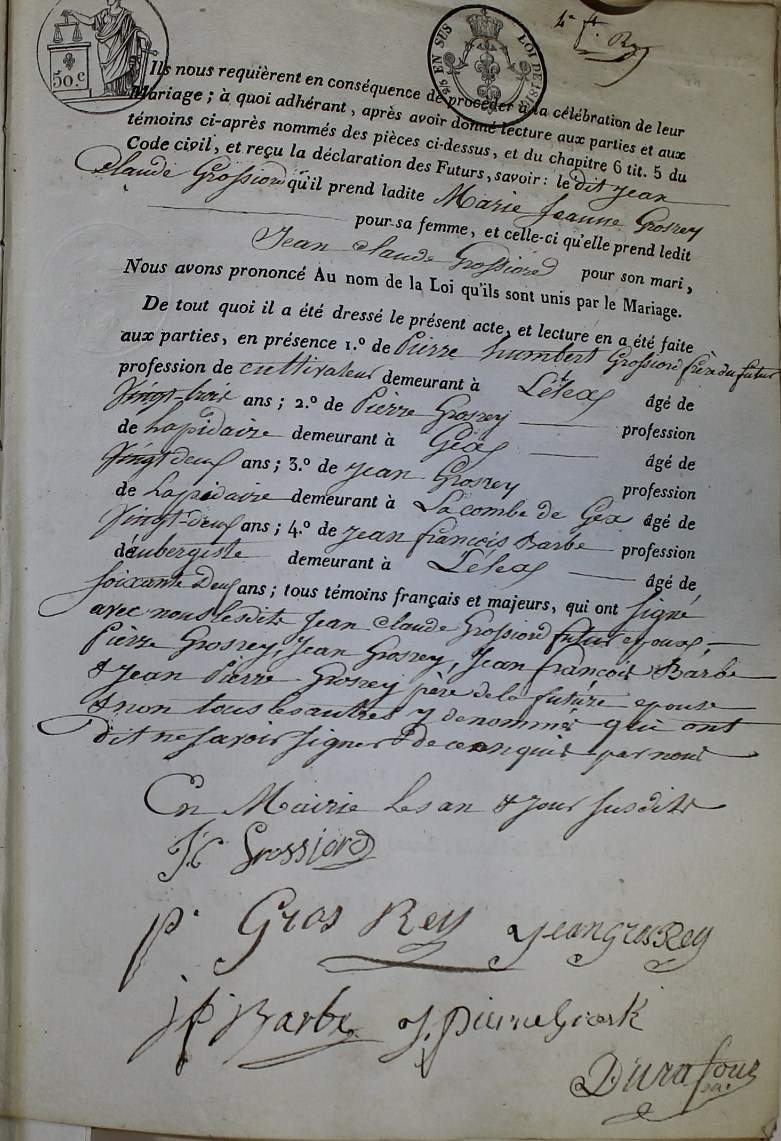 50.c
25 EN SUS LOI DE 18
4e ft
Ils nous requièrent en conséquence de procéder à la célébration de leur
Mariage ; à quoi adhérant, après avoir donné lecture aux parties et aux
témoins ci-après nommés des pièces ci-dessus, et du chapitre 6 tit. 5 du
Code civil, et reçu la déclaration des Futurs, savoir : le dit Jean
Claude Grossiord qu'il prend ladite Marie Jeanne Grosrey
pour sa femme, et celle-ci qu'elle prend ledit
Jean Claude Grossiord pour son mari,
Nous avons prononcé Au nom de la Loi qu'ils sont unis par le Mariage.
De tout quoi il a été dressé le présent acte, et lecture en a été faite
aux parties, en présence 1.º de Pierre humbert Grossiord frère du futur
profession de cultivateur demeurant à Lélex âgé de
Vingt-trois ans ; 2.º de Pierre Grosrey profession
de Lapidaire demeurant à Gex âgé de
Vingt deux ans ; 3.º de Jean Grosrey profession
de Lapidaire demeurant à La combe de Gex âgé de
Vingt-deux ans ; 4.º de Jean françois Barbe profession
d'aubergiste demeurant à Lélex âgé de
soixante Deux ans ; tous témoins français et majeurs, qui ont signé
avec nous lesdits Jean Claude Grossiord futur epoux
Pierre Grosrey, Jean Grosrey, Jean françois Barbe
& Jean Pierre Grosrey père de la future epouse
& non tous les autres y denommés qui ont
dit ne savoir signer de ce enquis par nous
En Mairie les an & jour susdits
J.C Grossiord
p. Gros Rey Jean Gros Rey
j f Barbe J. pierre
Durafour